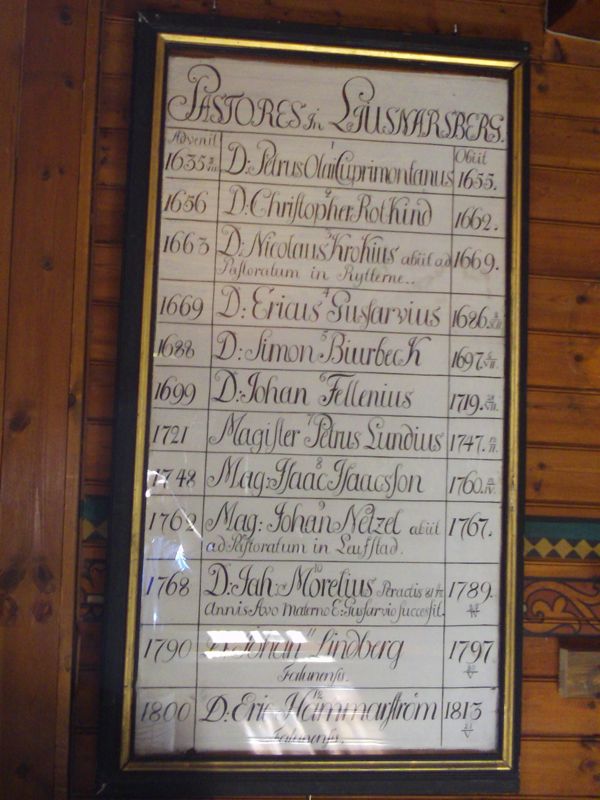 PASTORES in LJUSNARSBERG.
Advenit Obiit
1
1635 D: Petrus Olai Cuprimontanus 1655.
2
1656 D: Christopher Rotkind 1662.
3
1663 D: Nicolaus Krokius abiit ad 1669.
Pastoratum in Rytterne..
4
1669 D: Ericus Gusfarvius 1686.
5
1688 D: Simon Biuurbeck 1697.
6
1699 D: Johan Fellenius 1719.
7
1721 Magister Petrus Lundius 1747.
8
1748 Mag: Isaac Isaacsson 1760.
9
1762 Mag: Johan Netzel abiit 1767.
ad Pastoratum in Leufstad.
10
1768 D: Jah: Morelius Peractis 1789.
Annis Avo Materno E: Gusfarvio successit.
11
1790 D: Johan Lindberg 1797
Falunensis.
12
1800 D: Eric Hammarström 1813
Falunensis.